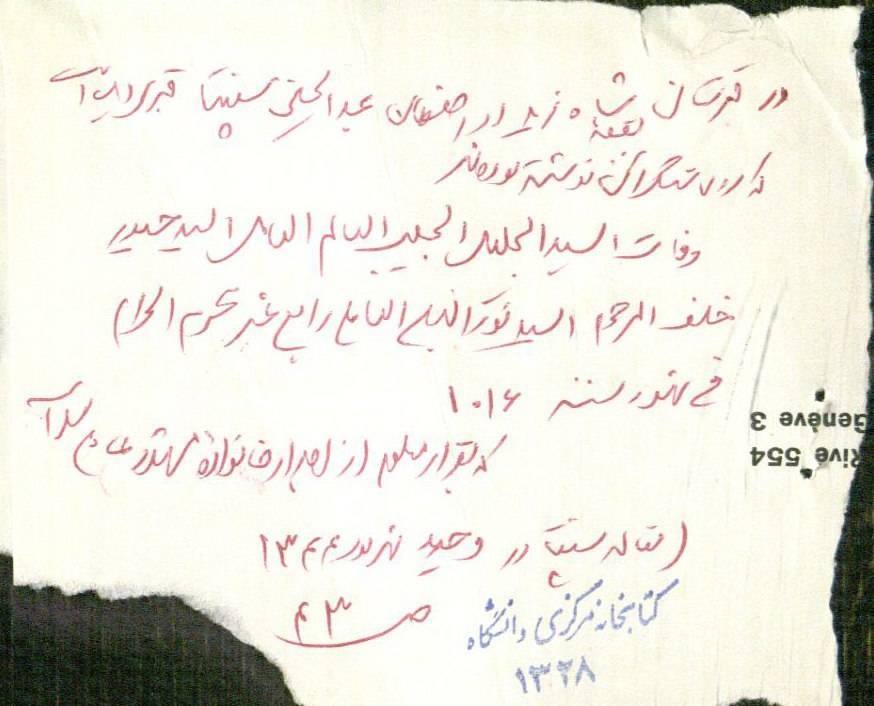 در قبرستان شاه زید در اصفهان عبدالحسین سپنتا قبری دیده است
بقعهٔ
که روی سنگ آن نوشته بوده‌اند
وفات السید الجلیل الحبیب العالم العامل السید حیدر
خلف المرحوم السید نورالدین العاملی رابع عشر محرم الحرام
فی شهور سنه ۱۰۱۶
که بقرار معلوم از اجداد خانواده
(مقاله سپنتا در وحید شهریور ۱۳۴۴
ص ۴۳
کتابخانه مرکزی دانشگاه
۱۳۲۸
Genève 3
Rive 554